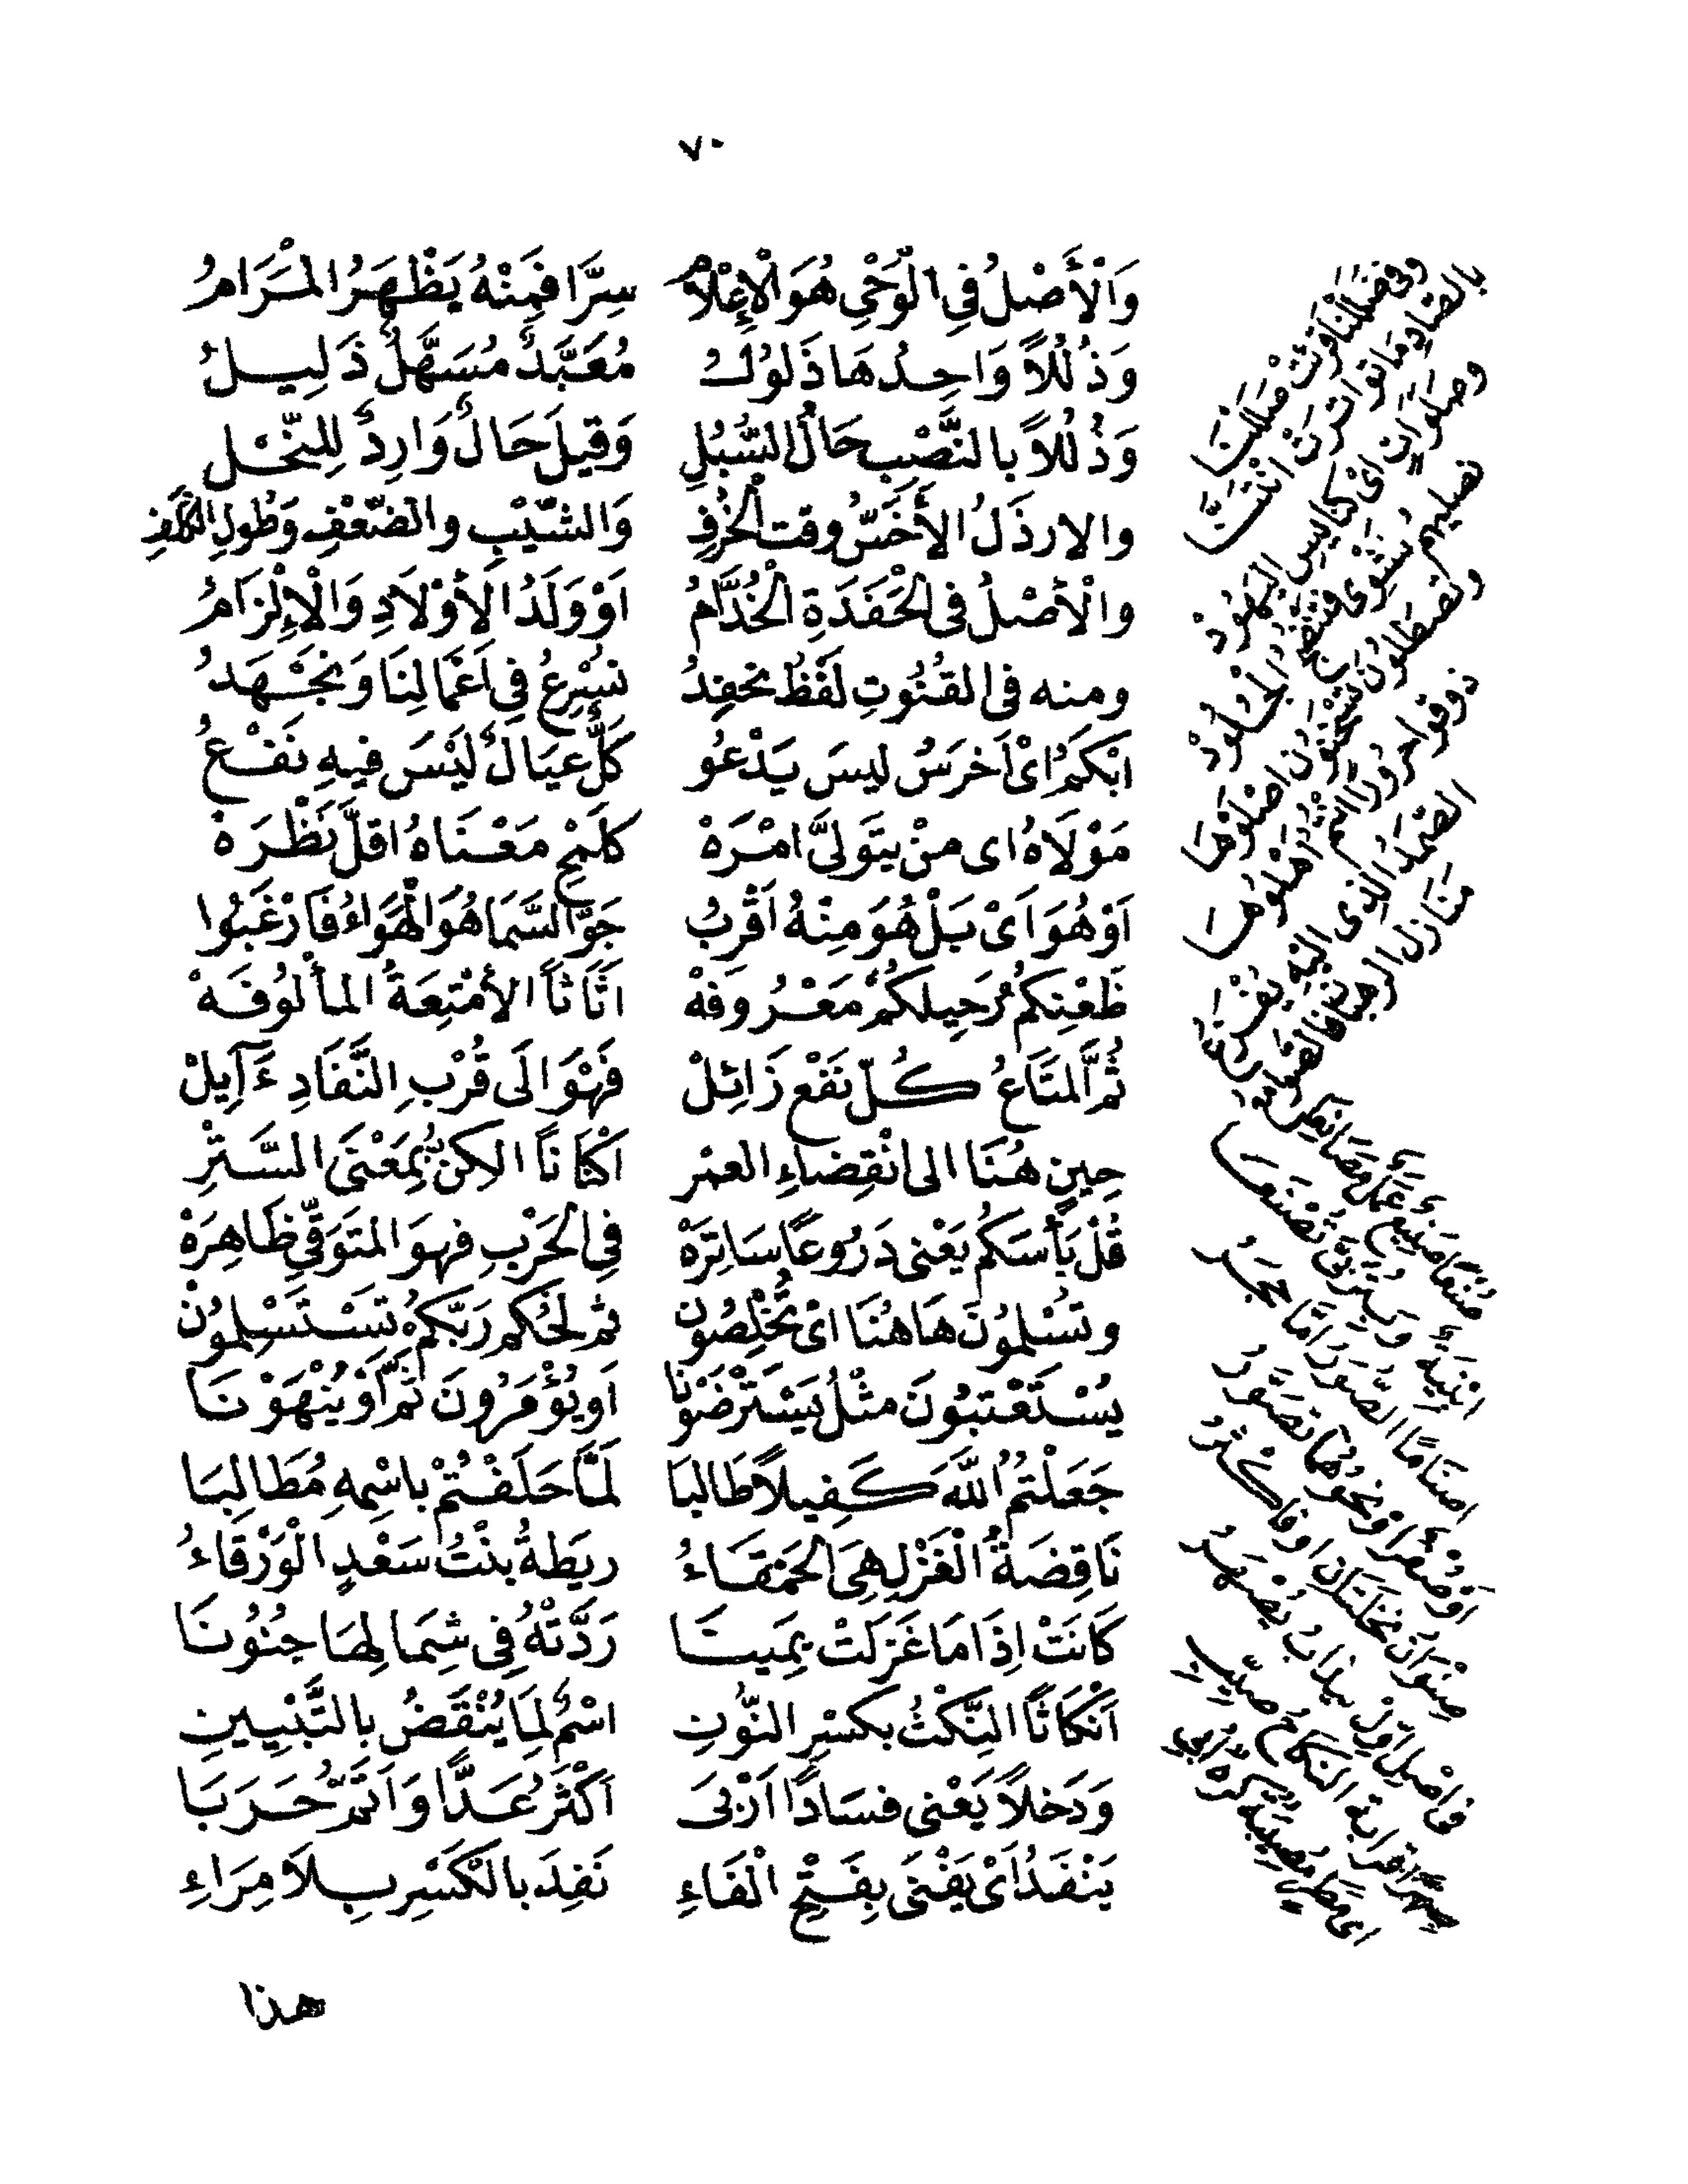 ٧٠
وَالْأَصْلُ فِي الْوَحْيِ هُوَ الْإِعْلَامُ سِرًّا فَمِنْهُ يَظْهَرُ الْمَرَامُ
وَذُلُلًا وَاحِدُهَا ذَلُولُ مُعَبَّدٌ مُسَهَّلٌ ذَلِيلُ
وَذُلُلًا بالنَّصْبِ حَالُ السُّبُلِ وَقِيلَ حَالٌ وَارِدٌ لِلنَّحْلِ
والارذَلُ الأَخَسُّ وقت الْخَرَفِ وَالشَّيْبِ والضَّعْفِ وَطُولِ
والْأَصْلُ فى الْحَفَدَةِ الْخُدَّامُ اَوْ وَلَدُ الْأَوْلَادِ وَالْإِلْزَامُ
ومنه فى القُنُوتِ لَفْظُ نحفِدُ نُسْرِعُ فِي اَعْمَالِنَا وَنَجْهَدُ
ابْكَمُ اىْ اَخرَسُ ليسَ يَدْعُو كَلٌّ عِيَالٌ لَيْسَ فيهِ نَفْعُ
مَوْلَاهُ اى منْ يتَوَلَّى امْرَهْ كلَمْحِ مَعْنَاهُ اقلَّ نَظْرَهْ
اَوْ هُوَ اَىْ بَلْ هُوَ مِنْهُ اَقْرَبُ جَوِّ السَّمَا هُوَ الْهَوَاءُ فَارْغَبُوا
ظَعْنِكمُ رَحِيلكُمْ مَعْرُوفَهْ اثَاثًا الأمْتِعَةُ المألُوفَهْ
ثُمَّ المَتَاعُ كُلّ نَفْعٍ زَائِلْ فَهْوَ الَى قُرْبِ النَّفَادِ ءَآيِلْ
حِينٍ هُنَا الى انْقِضاءِ العمْرِ اكْنَانًا الكِنُّ بِمَعْنَى السَّتْرِ
قُلْ بَأْسَكُمْ يَعْنى دَرُوعًا سَاتِرَهْ فِي الْحَرْبِ فهوَ المتَوَقِّي ظَاهِرَهْ
وتسْلِمُونَ هَاهُنَا اىْ تُخْلِصُون ثم لحُكمِ رَبِّكمْ تسْتَسْلِمُونْ
يُسْتَعْتَبُونَ مثْلُ يُسْتَرْضَوْنَا اَو يُؤْمَرُونَ ثَمَّ اَوْ يُنْهَوْنَا
جَعَلْتُمُ اللَّهَ كَفِيلًا طَالِبَا لَمَّا حَلَفْتُمْ باسْمِهِ مُطَالِبَا
نَاقِضَةُ الْغَزْلِ هِىَ الحَمْقَاءُ ريَطَةُ بنْتُ سَعْدٍ الْوَرْقَاءُ
كَانَتْ اِذَا مَا غَزَلَتْ يَمِينَا رَدَّتْهُ فِى شِمَالِهَا جُنُونَا
اَنْكَاثًا النِّكْثُ بكسْرِ النُّونِ اسْمٌ لِمَا يُنْقَضُ بالتَّبْيِينِ
وَدَخَلًا يَعْنى فسَادًا اَرْبَى اَكْثَرُ عَدًّا وَاَتَمُّ حَرَبَا
يَنْفَدُ اَىْ يَفْنَى بِفَتْحِ الْفَاءِ نَفِدَ بالْكَسْرِ بِلَا مِرَاءِ
بالضاد ما تواترت
وصلوات اى كنايس اليهود
تصليهم نشوى فتنضج الجلود
وتصطلون تسخنون اصلوها
ذوقوا حرورا ثم املوها
الصمد الذى اليه
منازل الرهبان فالصوامع
صنعا صنيع عمل مصانع
ابنية
اصناما الصور اما
صنوان نخلتان او فاكثر
فاصل اول يذاب يصهر
هذا